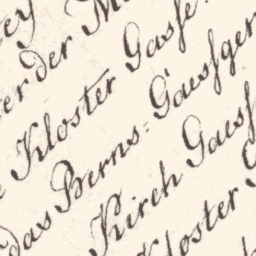 er der
Kloster Gasse
das Berns: Gaessger
Kirch Gaess
Kloster